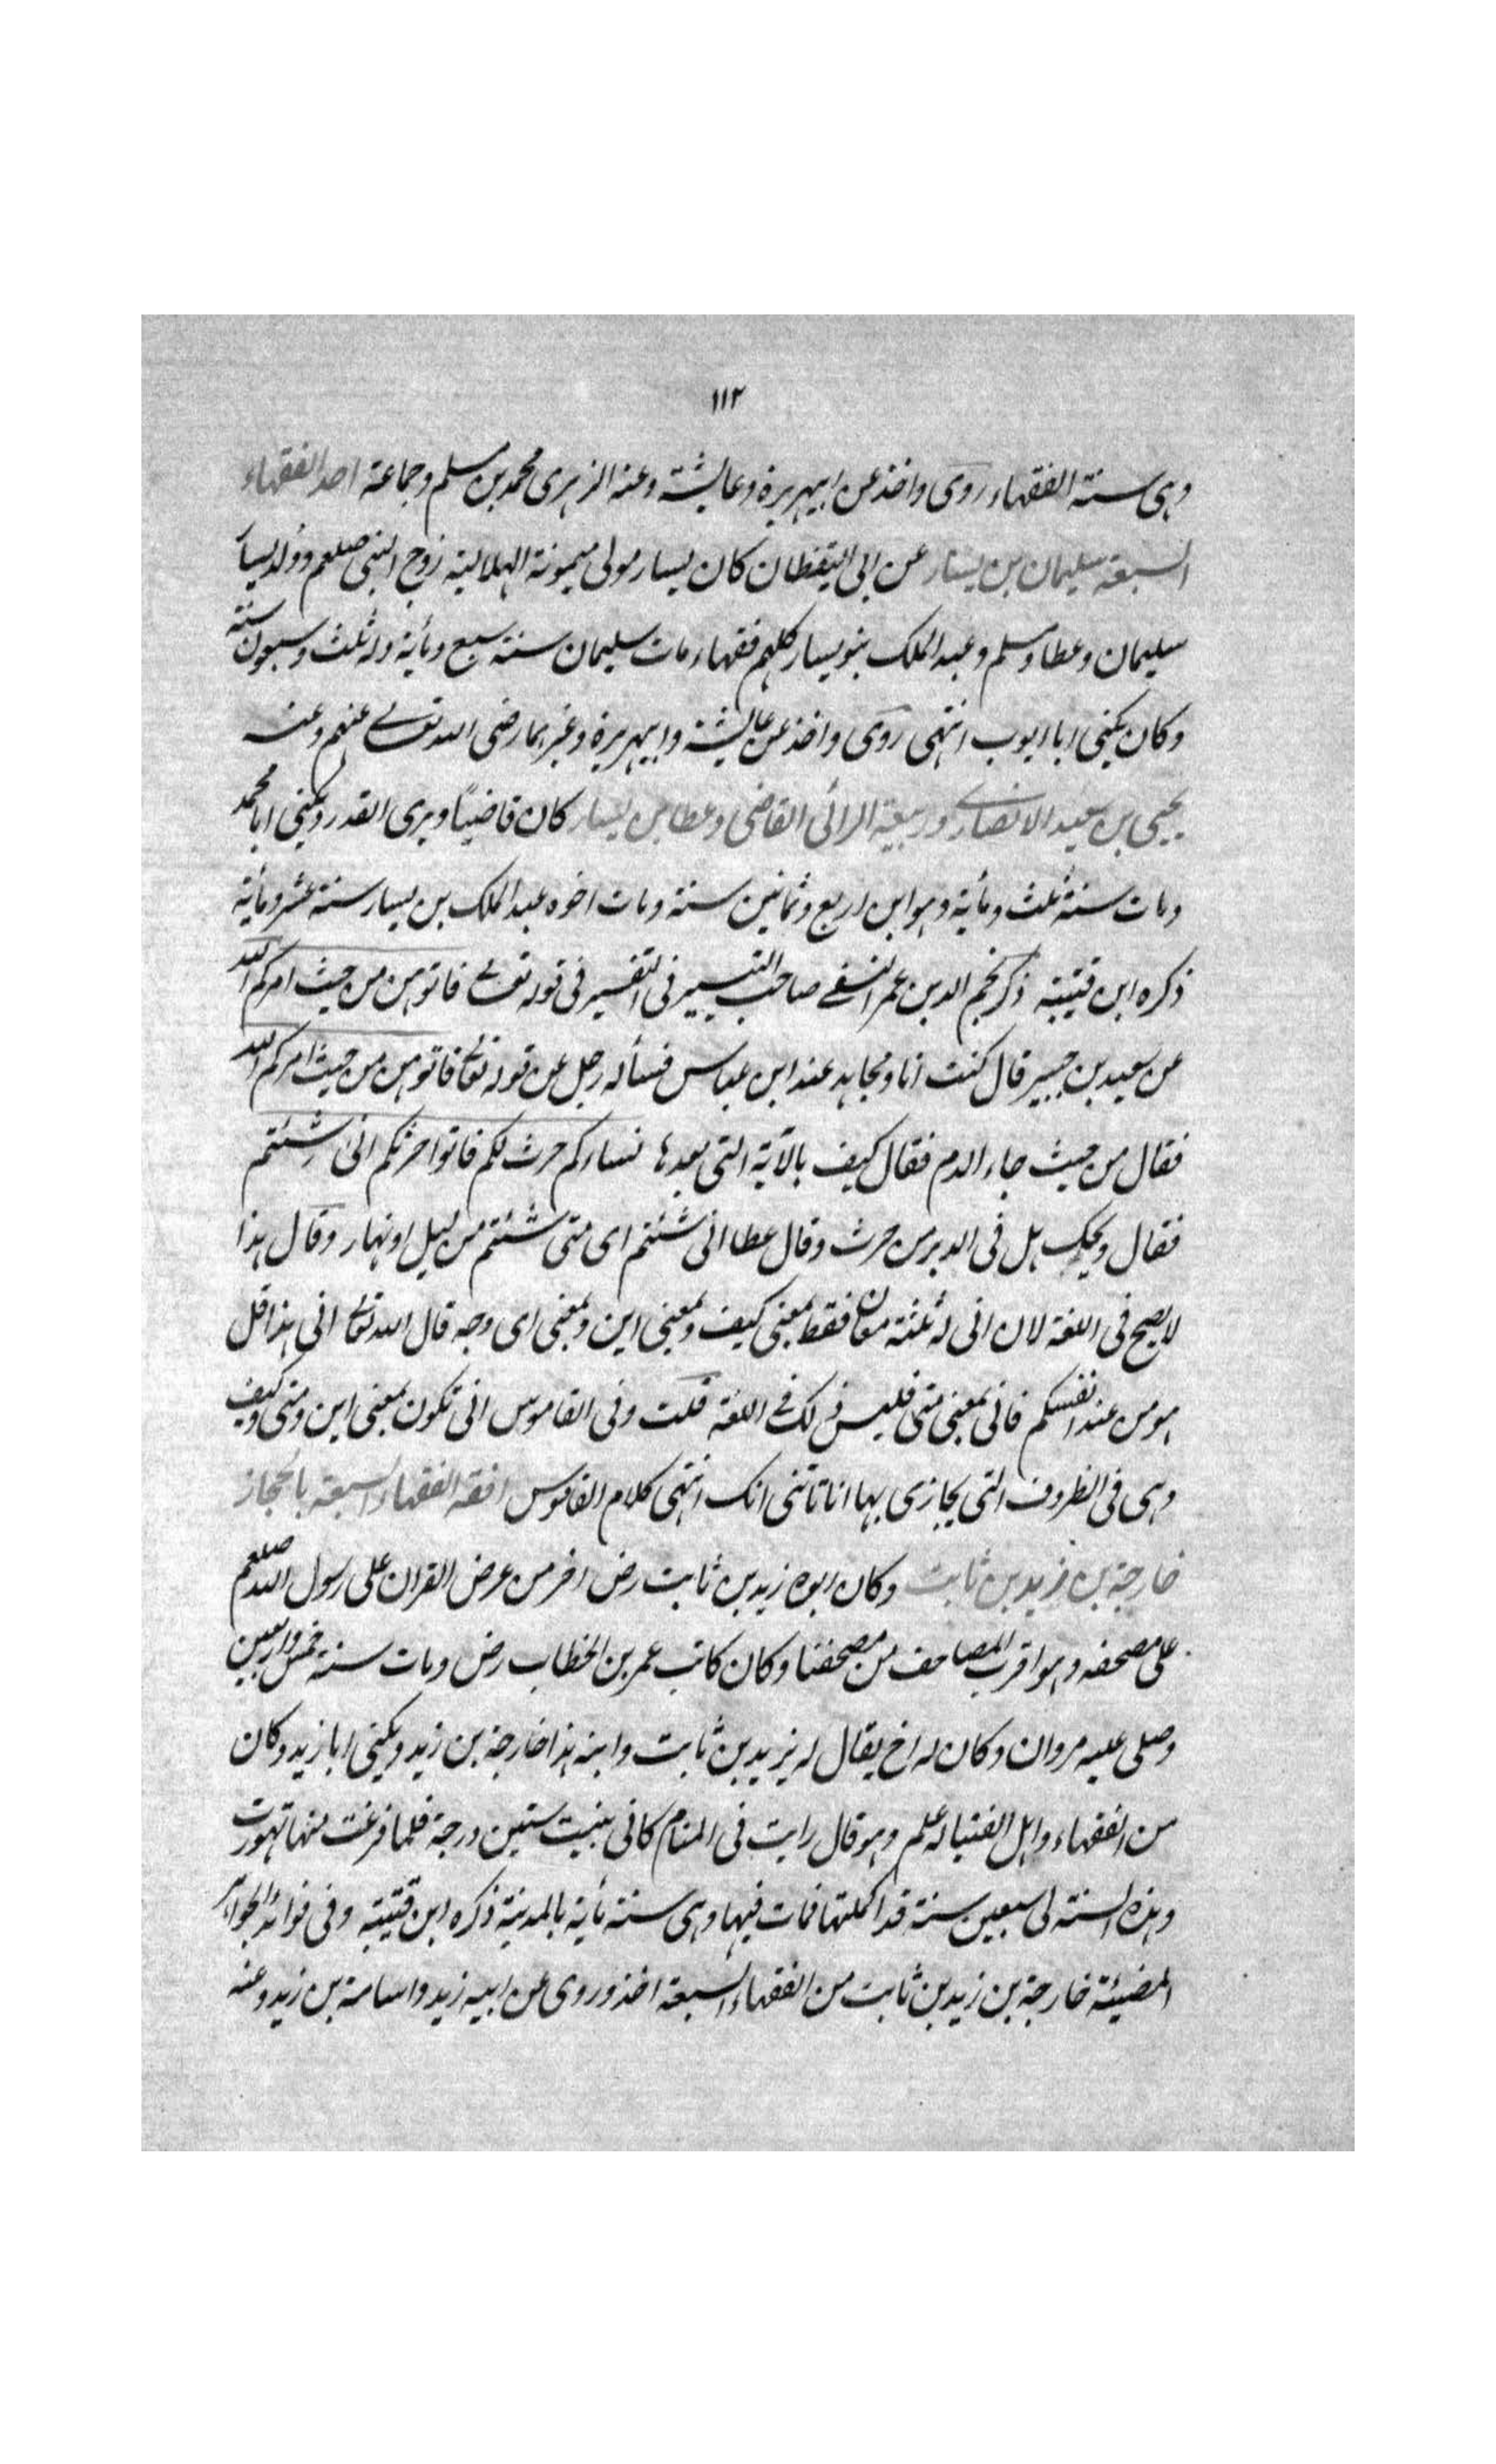 ١١٢
وهى سنة الفقهاء روى واخذ عن ابيهريرة وعايشة وعنه الزهرى محمد بن مسلم وجماعة احد الفقهاء
السبعة سليمان بن يسار عن ابى اليقظان كان يسار مولى ميمونة الهلالية زوج النبى صلعم وولد يسار
سليمان وعطا ومسلم وعبد الملك بنو يسار كلهم فقهاء مات سليمان سنة سبع ومأية وله ثلث وسبعون سنة
وكان يكنى ابا ايوب انتهى روى واخذ عن عايشة وابيهريرة وغيرهما رضى الله تعالى عنهم وعنه
يحيى بن سعيد الانصارى وربيعة الرائى القاضى وعطا بن يسار كان قاضيًا ويرى القدر ويكنى ابا محمد
ومات سنة ثلث ومأية وهو ابن اربع وثمانين سنة ومات اخوه عبد الملك بن يسار سنة عشر ومأية
ذكره ابن قتيبة ذكر نجم الدين عمر النسفى صاحب التيسير فى التفسير فى قوله تعالى فاتوهن من حيث امركم الله
عن سعيد بن جبير قال كنت انا ومجاهد عند ابن عباس فسأله رجل عن قوله تعالى فاتوهن من حيث امركم الله
فقال من حيث جاء الدم فقال كيف بالآية التى بعدها نساءكم حرث لكم فاتوا حرثكم انى شئتم
فقال ويحك هل فى الدبر من حرث وقال عطا انى شئتم اى متى شئتم من ليل او نهار وقال هذا
لا يصح فى اللغة لان انى له ثلثة معان فقط بمعنى كيف وبمعنى اين وبمعنى اى وجه قال الله تعالى انى هذا قل
هو من عند انفسكم فانى بمعنى متى فليس ذلك فى اللغة قلت وفى القاموس انى تكون بمعنى اين ومتى وكيف
وهى فى الظروف التى يجازى بها انا تاتنى انك انتهى كلام القاموس افقه الفقهاء السبعة بالحجاز
خارجة بن زيد بن ثابت وكان ابوه زيد بن ثابت رض اخر من عرض القران على رسول الله صلعم
على مصحفه وهو اقرب المصاحف من مصحفنا وكان كاتب عمر بن الخطاب رض ومات سنة خمس واربعين
وصلى عليه مروان وكان له اخ يقال له يزيد بن ثابت وابنه هذا خارجة بن زيد ويكنى ابا زيد وكان
من الفقهاء واهل الفتيا له علم وهو قال رايت فى المنام كانى بنيت ستين درجة فلما فرغت منها تهورت
وهذه السنة لى سبعين سنة قد اكملتها فمات فيها وهى سنة مأية بالمدينة ذكره ابن قتيبة وفى فوائد الجواهر
المضيئة خارجة بن زيد بن ثابت من الفقهاء السبعة اخذ وروى عن ابيه زيد واسامة بن زيد وعنه